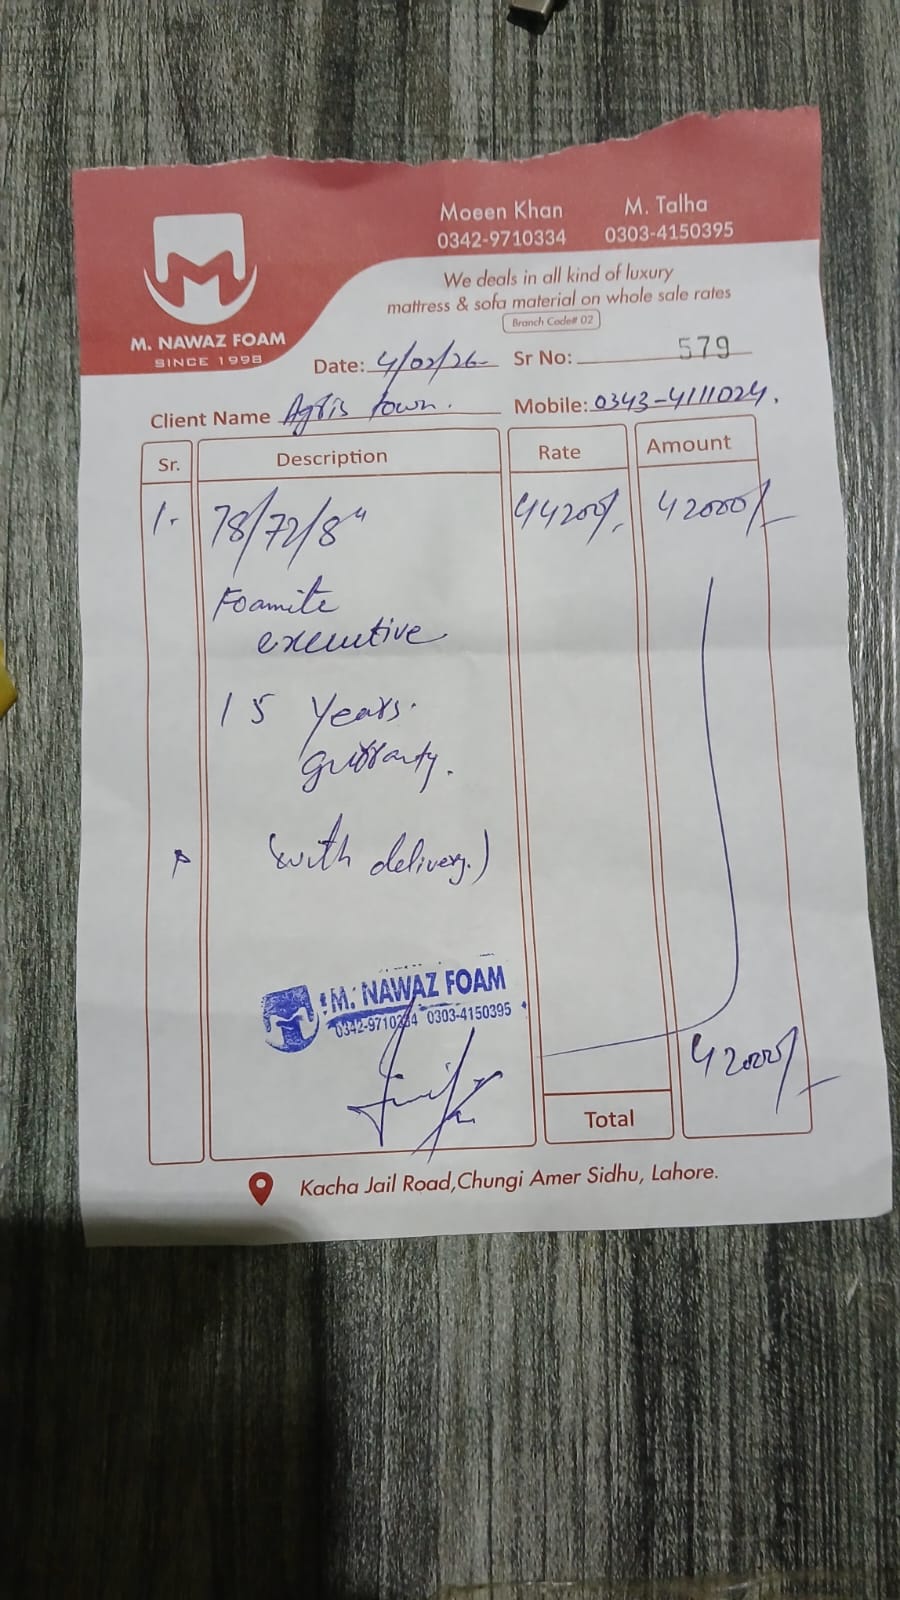 Moeen Khan M. Talha
0342-9710334 0303-4150395
We deals in all kind of luxury
mattress & sofa material on whole sale rates
Branch Code# 02
M. NAWAZ FOAM
SINCE 1998
Date: 4/02/26 Sr No: 579
Client Name Agris town. Mobile: 0343-4111024.
Sr. Description Rate Amount
1. 78/72/8" 44200/. 42000/-
Foamite
executive
15 Years.
(with delivery.)
M. NAWAZ FOAM
0342-9710334 0303-4150395
42000/-
Total
Kacha Jail Road,Chungi Amer Sidhu, Lahore.